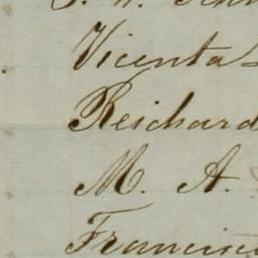 Vicenta
Reichard
M. A.
Francisc